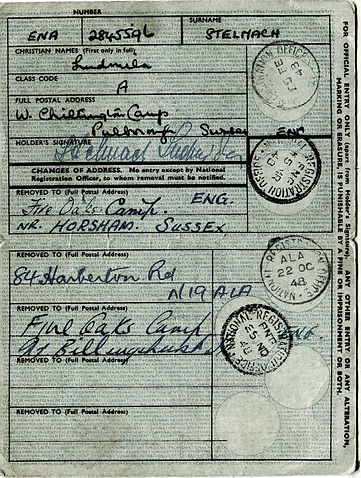 NUMBER SURNAME
ENA 2845596 STELMACH
CHRISTIAN NAMES (First only in full)
Ludmila
CLASS CODE
A
FULL POSTAL ADDRESS
W. Chiltington Camp
Pulborough Sussex ENG
HOLDER'S SIGNATURE
Stelmach Ludmila
CHANGES OF ADDRESS. No entry except by National
Registration Officer, to whom removal must be notified.
REMOVED TO (Full Postal Address) ENG.
Five Oaks Camp.
NR. HORSHAM. SUSSEX
REMOVED TO (Full Postal Address)
84 Harberton Rd
N19 ALA
REMOVED TO (Full Postal Address)
Five Oaks Camp
Nr Billingshurst
REMOVED TO (Full Postal Address)
REMOVED TO (Full Postal Address)
FOR OFFICIAL ENTRY ONLY (apart from Holder's Signature). ANY OTHER ENTRY OR ANY ALTERATION, MARKING OR ERASURE, IS PUNISHABLE BY A FINE OR IMPRISONMENT OR BOTH.
NATIONAL REGISTRATION OFFICE
ALA
22 OC
48
NATIONAL REGISTRATION OFFICE
48